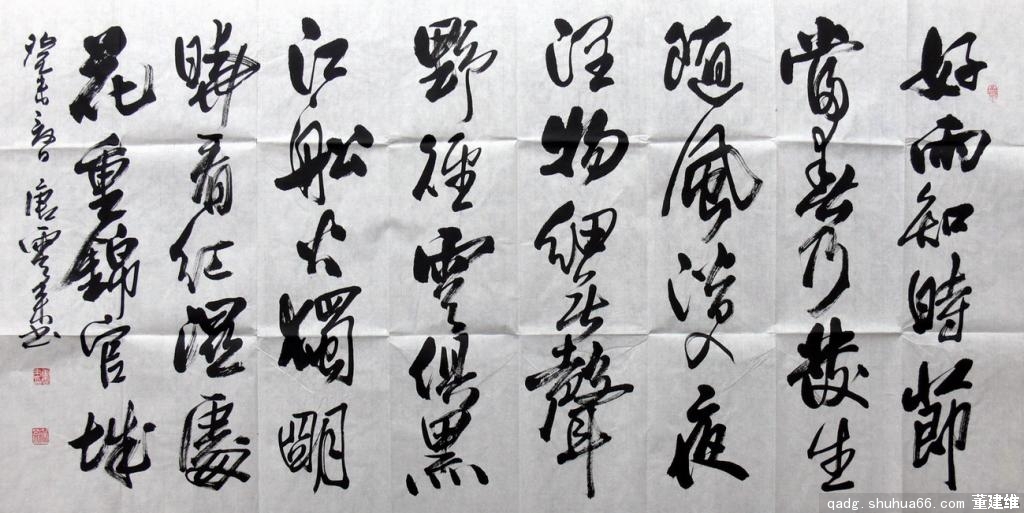 好雨知時節
當春乃發生
随風潛入夜
潤物細無聲
野徑雲俱黑
江船火獨明
曉看红濕處
花重錦官城
癸未 唐雲来书
qadg.shuhua66.com 董建维